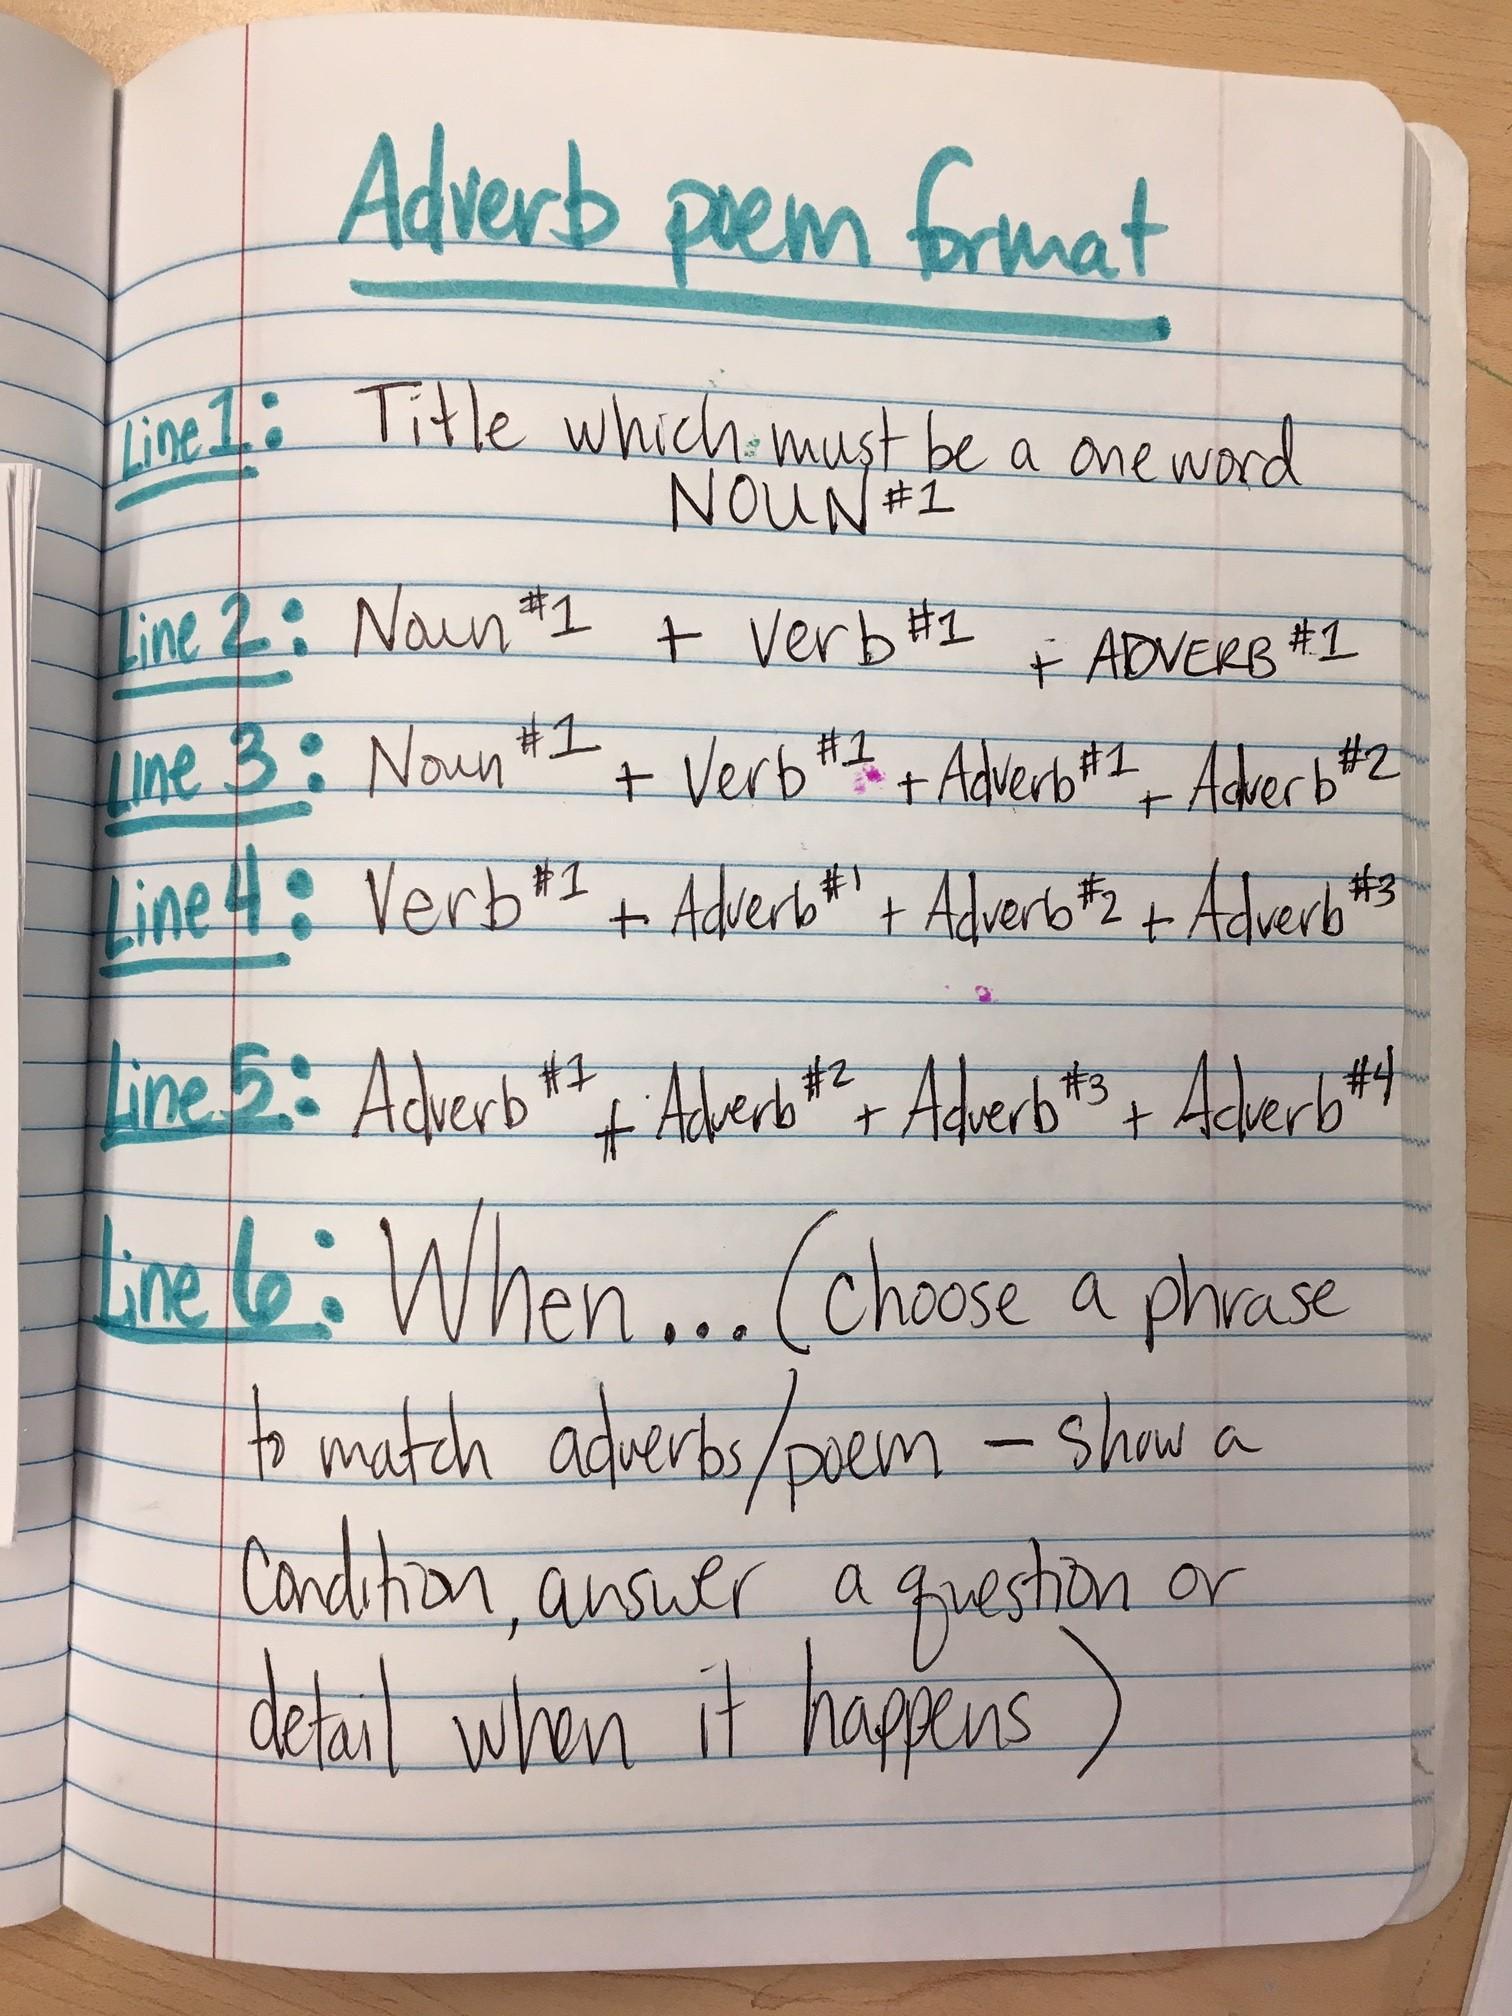 Adverb poem format
Line 1: Title which must be a one word
NOUN #1
Line 2: Noun #1 + Verb #1 + ADVERB #1
Line 3: Noun #1 + Verb #1 + Adverb #1 + Adverb #2
Line 4: Verb #1 + Adverb #1 + Adverb #2 + Adverb #3
Line 5: Adverb #1 + Adverb #2 + Adverb #3 + Adverb #4
Line 6: When... (choose a phrase
to match adverbs/poem - show a
condition, answer a question or
detail when it happens)